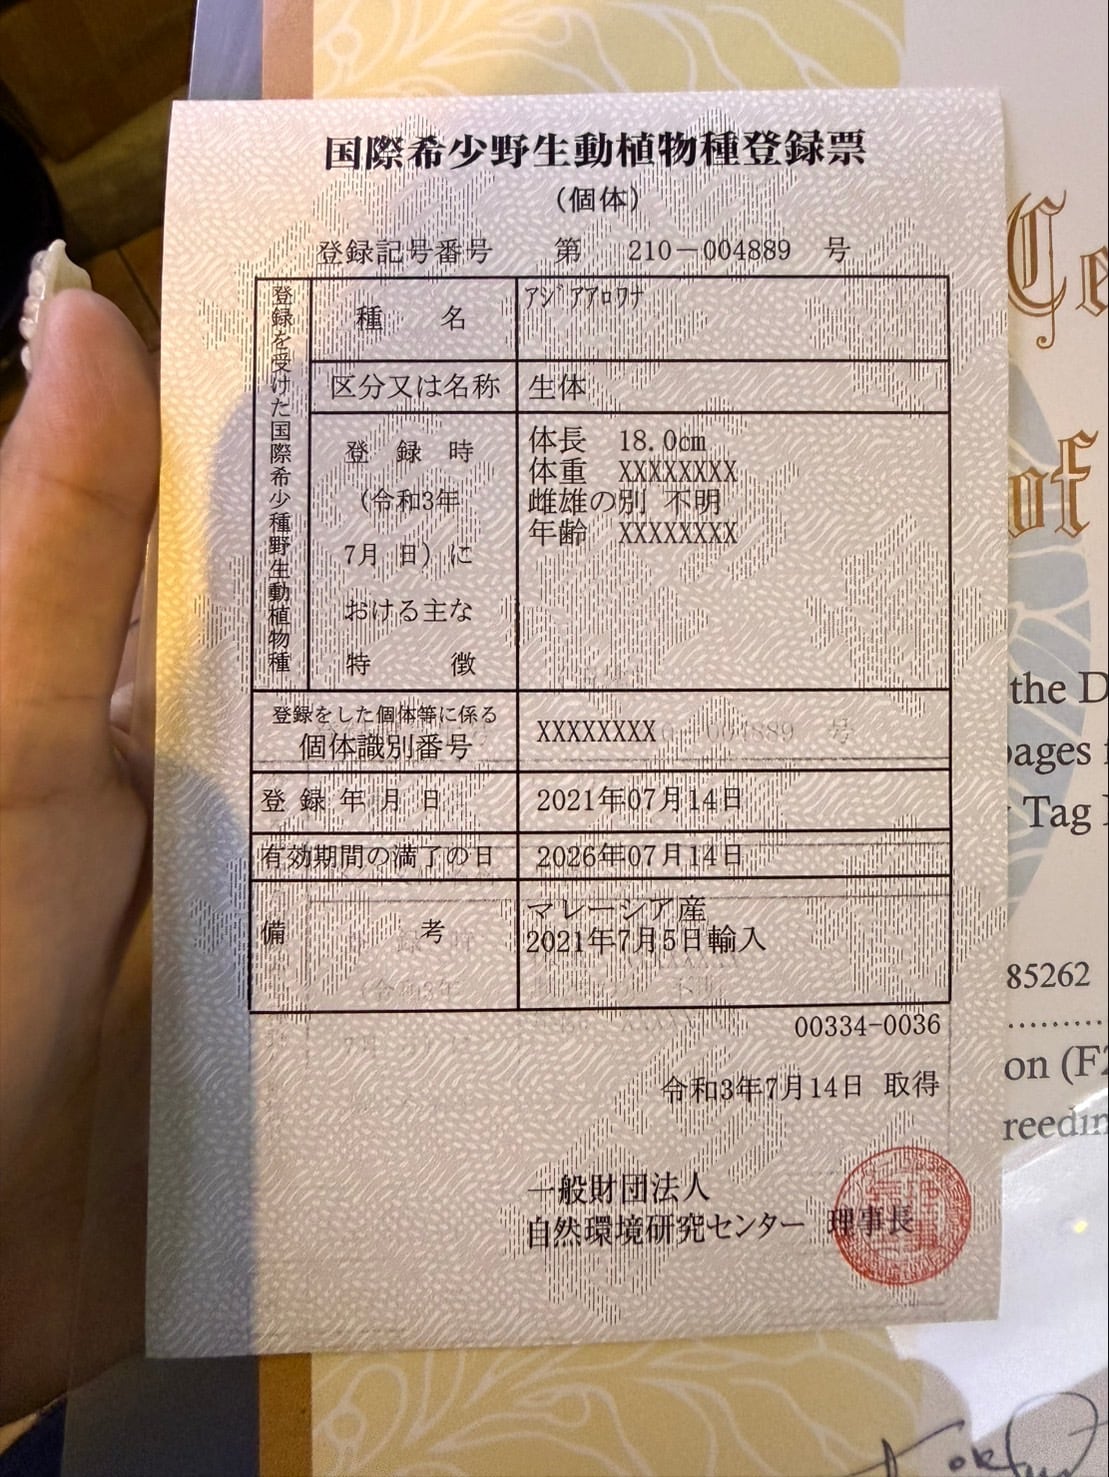 国際希少野生動植物種登録票
(個体)
登録記号番号 第 210-004889 号
登録を受けた国際希少種野生動植物種
種名 アジアアロワナ
区分又は名称 生体
登録時
(令和3年
7月 日)に
おける主な
特徴
体長 18.0cm
体重 XXXXXXXX
雌雄の別 不明
年齢 XXXXXXXX
登録をした個体等に係る
個体識別番号 XXXXXXXX
登録年月日 2021年07月14日
有効期間の満了の日 2026年07月14日
備考
マレーシア産
2021年7月5日輸入
00334-0036
令和3年7月14日 取得
一般財団法人
自然環境研究センター 理事長
of
the
Tag
85262
on